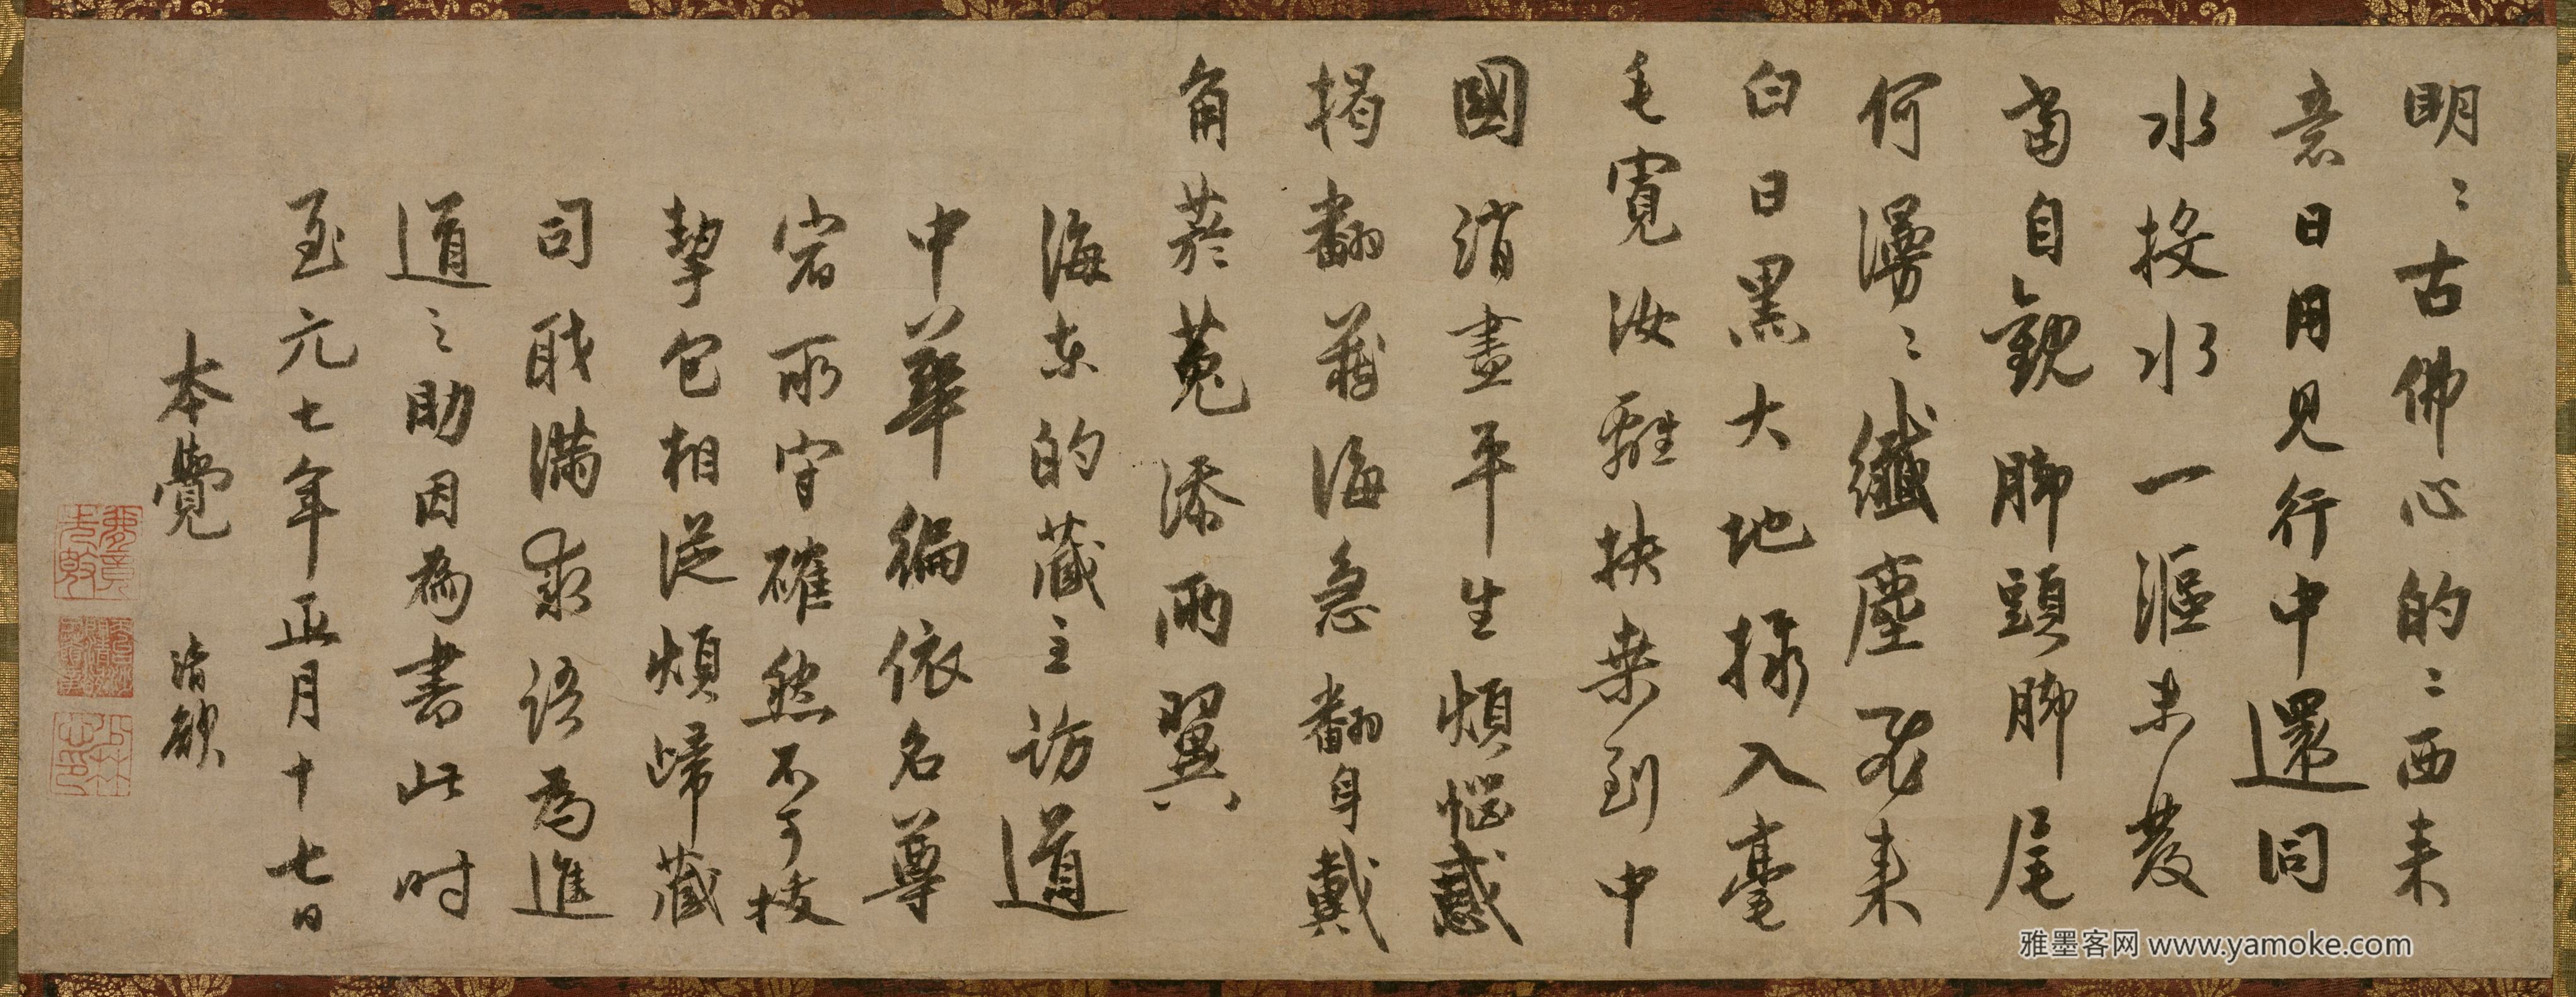 明〻古佛心的〻西来
意日用見行中還同
水投水一漚未發
當自観脚頭脚尾
何漫〻纖塵不来
白日黑大地撮入毫
毛寬汝雖扶桒到中
國消盡平生煩惱惑
揭翻藏海急翻身戴
角菸菟添兩翼
海東的藏主訪道
中華徧依名尊
宿所守確然不可拔
挈包相從煩歸藏
司職滿求語為進
道之助因為書此时
至元七年正月十七日
本覺 清欲
雅墨客网 www.yamoke.com